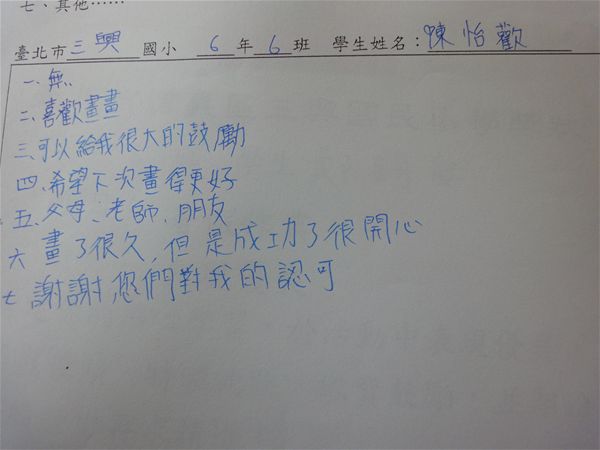 七、其他……
臺北市三興國小 6年6班 學生姓名：陳怡歡
一、無
二、喜歡畫畫
三、可以給我很大的鼓勵
四、希望下次畫得更好
五、父母、老師、朋友
六 畫了很久，但是成功了很開心
七 謝謝您們對我的認可